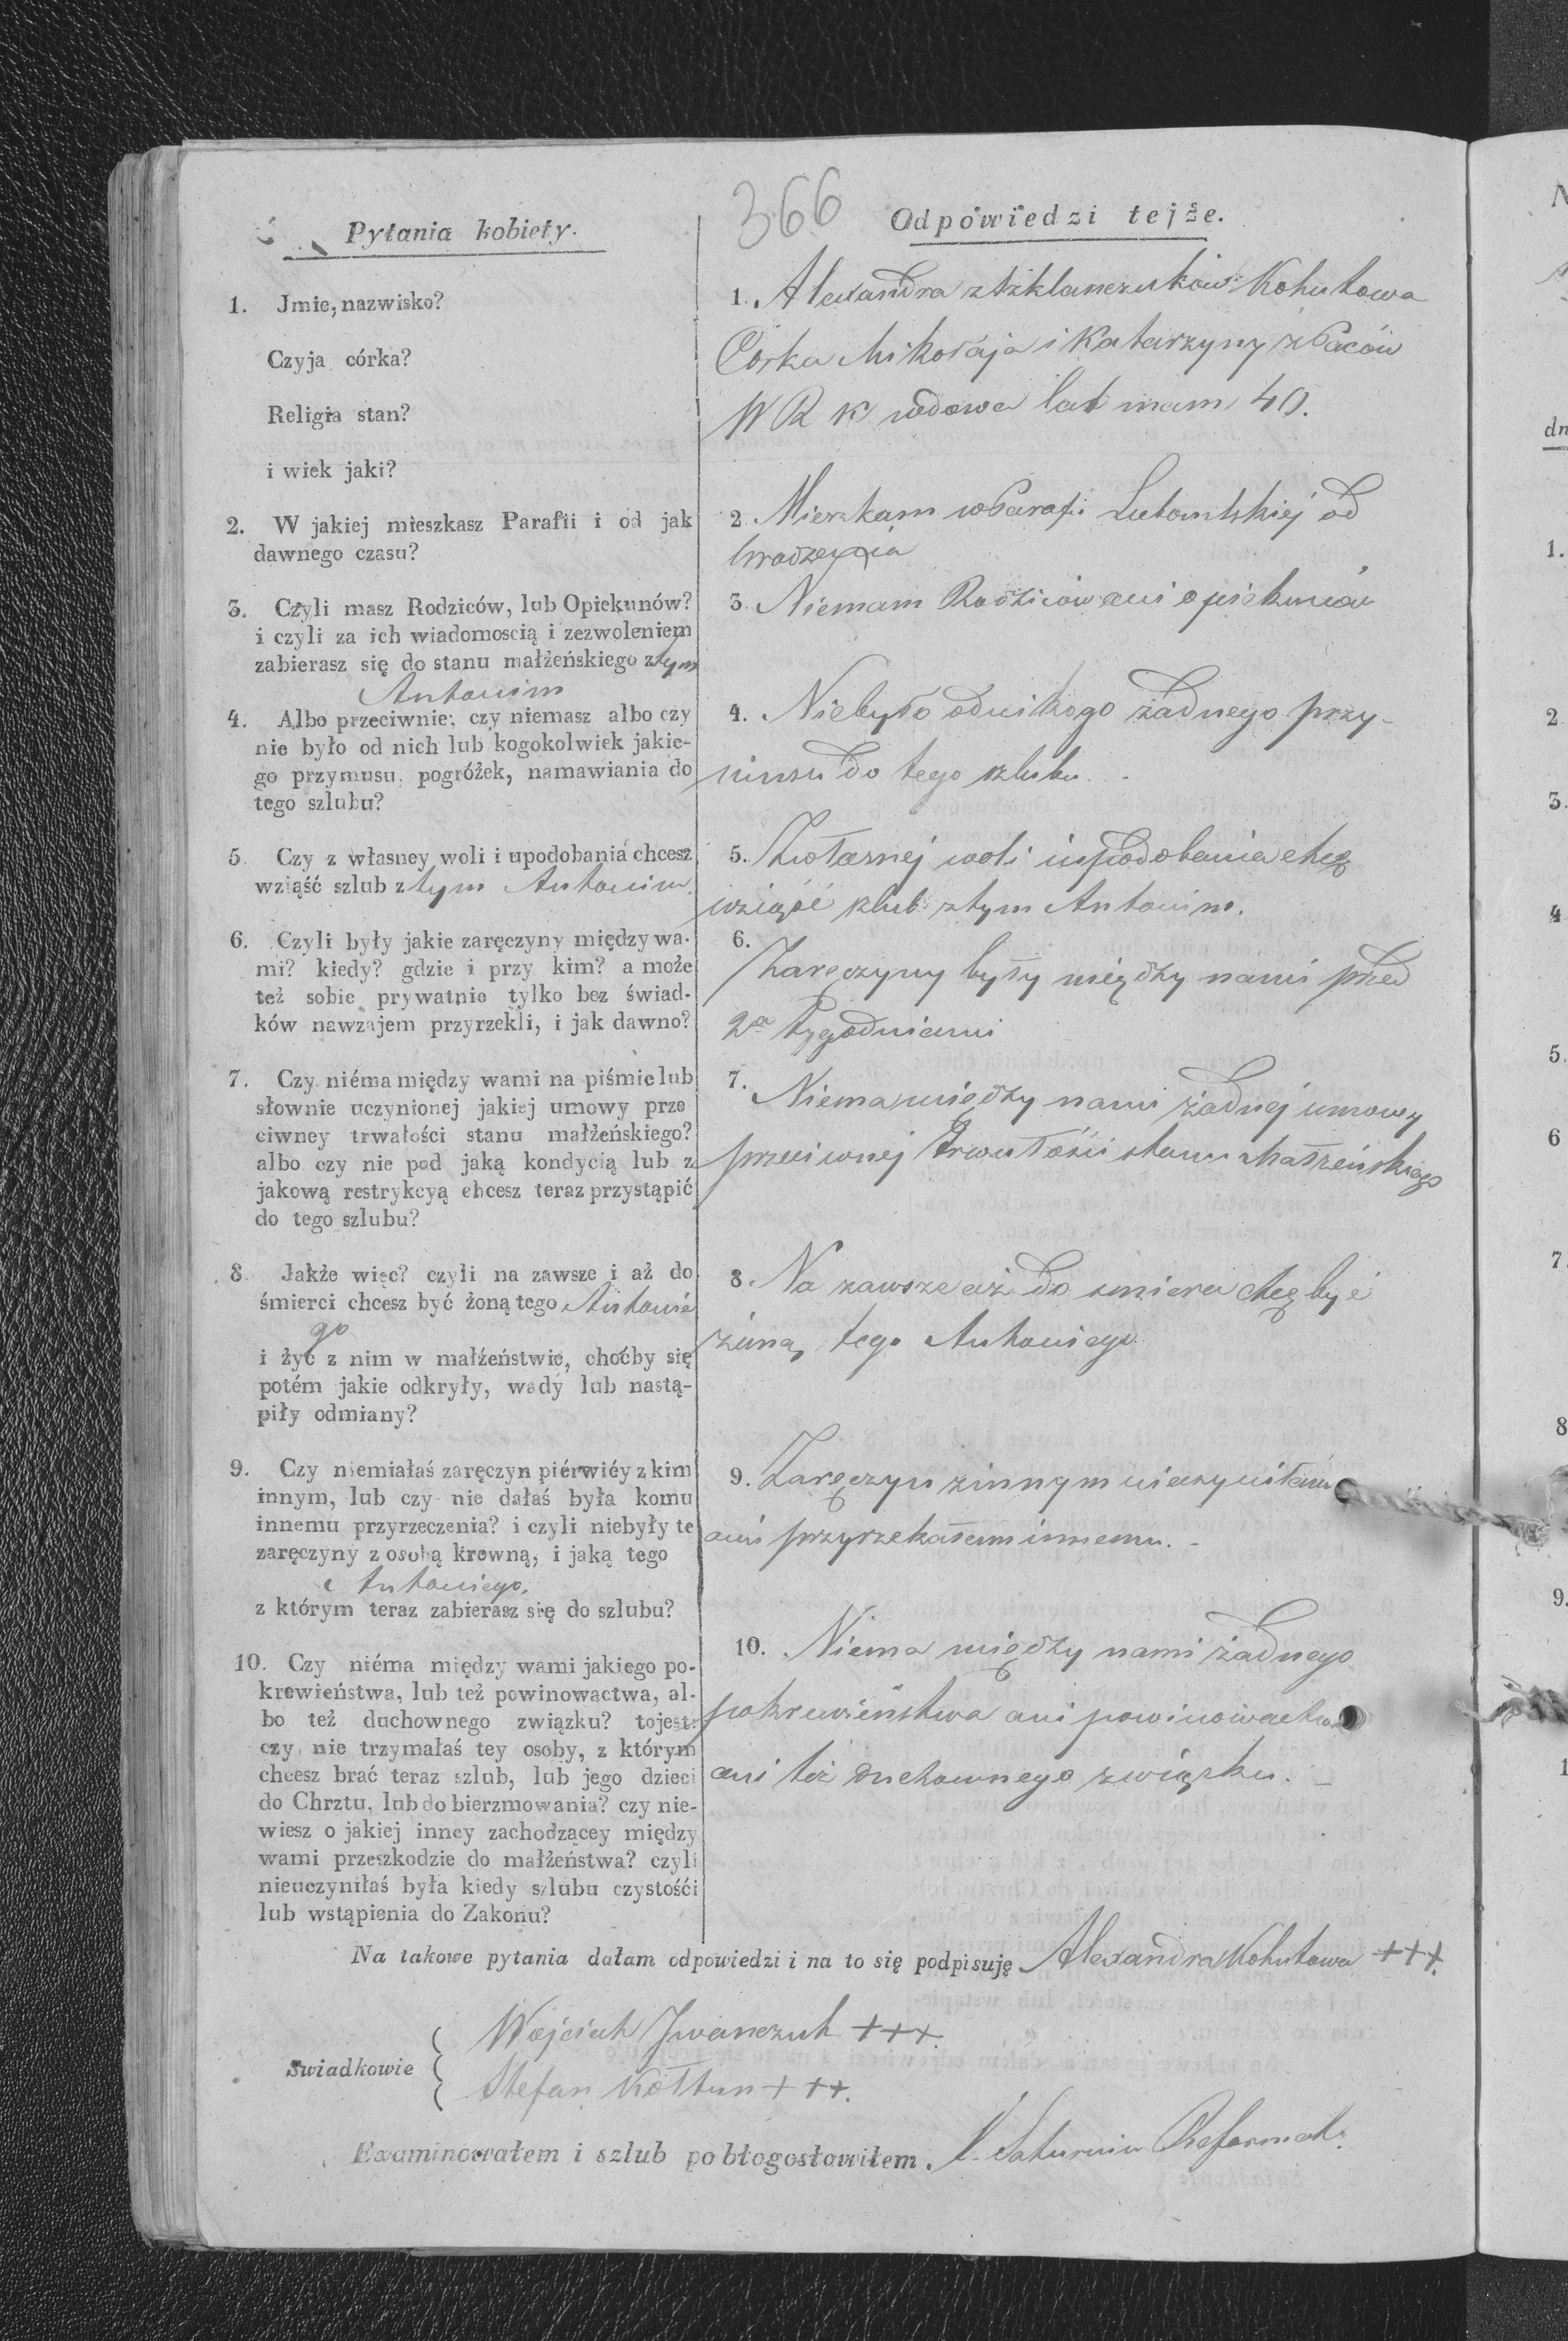 366
Pytania kobiety.
Odpowiedzi tejże.
1. Jmie, nazwisko?
Czyja córka?
Religia stan?
i wiek jaki?
1. Alexandra z Szklanczuków Kohutowa
Córka Mikołaja i Katarzyny z Paców
W R K wdowa lat mam 40.
2. W jakiej mieszkasz Parafii i od jak
dawnego czasu?
2. Mieszkam w Parafii od
Urodzenia
3. Czyli masz Rodziców, lub Opiekunów?
i czyli za ich wiadomoscią i zezwoleniem
zabierasz się do stanu małżeńskiego z tym
Antonim
3. Niemam Rodziców ani opiekunów
4. Albo przeciwnie; czy niemasz albo czy
nie było od nich lub kogokolwiek jakie-
go przymusu, pogróżek, namawiania do
tego szlubu?
4. Niebyło od nikogo żadnego przy-
musu do tego szlubu.
5. Czy z własney woli i upodobania chcesz
wziąść szlub z tym Antonim.
5. Zwłasnej woli i upodobania chcę
wziąść szlub z tym Antonim.
6. Czyli były jakie zaręczyny między wa-
mi? kiedy? gdzie i przy kim? a może
też sobie prywatnie tylko bez świad-
ków nawzajem przyrzekli, i jak dawno?
6. Zaręczyny były między nami przed
2a Tygodniami
7. Czy niéma między wami na piśmie lub
słownie uczynionej jakiej umowy prze
ciwney trwałości stanu małżeńskiego?
albo czy nie pod jaką kondycią lub z
jakową restrykcyą chcesz teraz przystąpić
do tego szlubu?
7. Niema między nami żadnej umowy
przeciwnej trwałości stanu Małżeńskiego
8. Jakże więc? czyli na zawsze i aż do
śmierci chcesz być żoną tego Antonie
go
i żyć z nim w małżeństwie, choćby się
potém jakie odkryły, wady lub nastą-
piły odmiany?
8. Na zawsze aż do smierci chcę być
żoną tego Antoniego
9. Czy niemiałaś zaręczyn piérwiéy z kim
innym, lub czy nie dałaś była komu
innemu przyrzeczenia? i czyli niebyły te
zaręczyny z osobą krewną, i jaką tego
Antoniego.
z którym teraz zabierasz się do szlubu?
9. Zaręczyn zinnym nieczyniłam
ani przyrzekałam innemu. -
10. Czy niéma między wami jakiego po-
krewieństwa, lub też powinowactwa, al-
bo też duchownego związku? tojest:
czy nie trzymałaś tey osoby, z którym
chcesz brać teraz szlub, lub jego dzieci
do Chrztu, lub do bierzmowania? czy nie-
wiesz o jakiej inney zachodzącey między
wami przeszkodzie do małżeństwa? czyli
nieuczyniłaś była kiedy szlubu czystośći
lub wstąpienia do Zakonu?
10. Niema między nami żadnego
pokrewieństwa ani powinowactwa
ani też duchownego związku. -
Na takowe pytania dałam odpowiedzi i na to się podpisuję Alexandra Kohutowa +++.
Swiadkowie
Wojciech Jwanczuk +++.
Stefan Kołtun +++.
Examinowałem i szlub pobłogosławiłem. X. Saturnin Reformat.